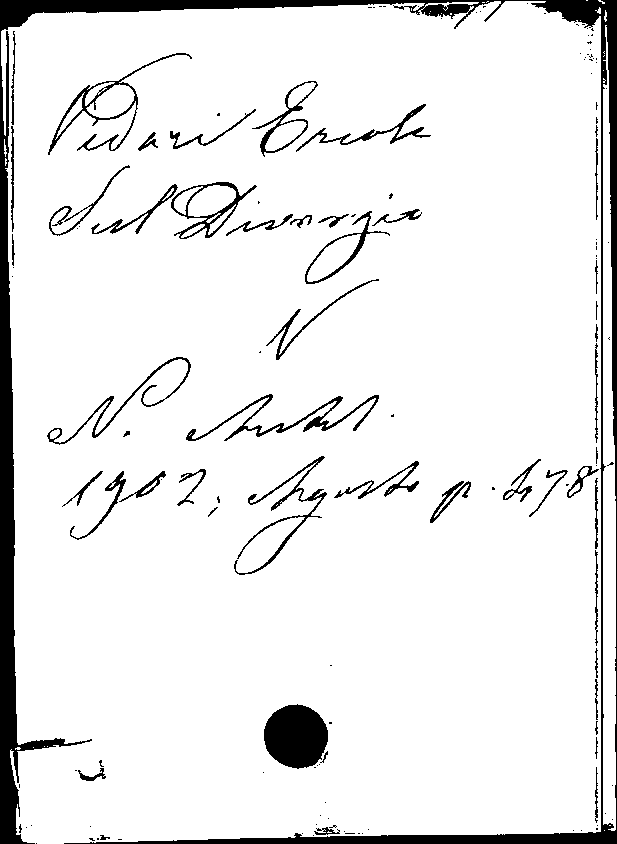 Vidari Ercole
Sul Divorzio
V
N. Antol.
1902, Agosto p. 478